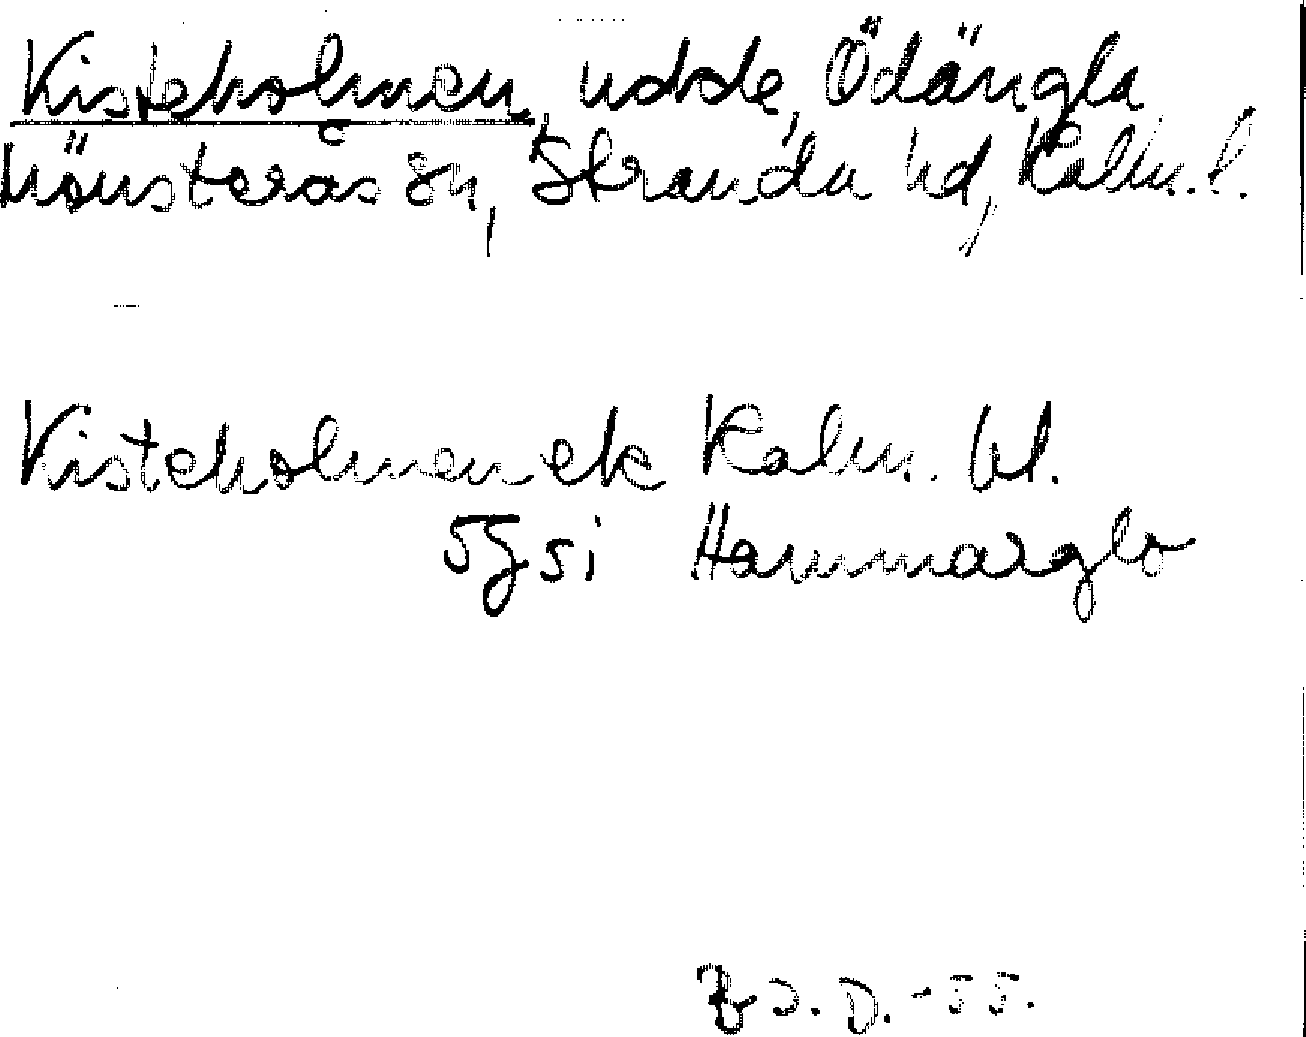 Kisteholmen, udde, Ödängla
Mönsterås sn, Stranda hd, Kalm. l.
Kisteholmen ek Kalm. bl.
5g5i Hammarglo
J. D. -55.